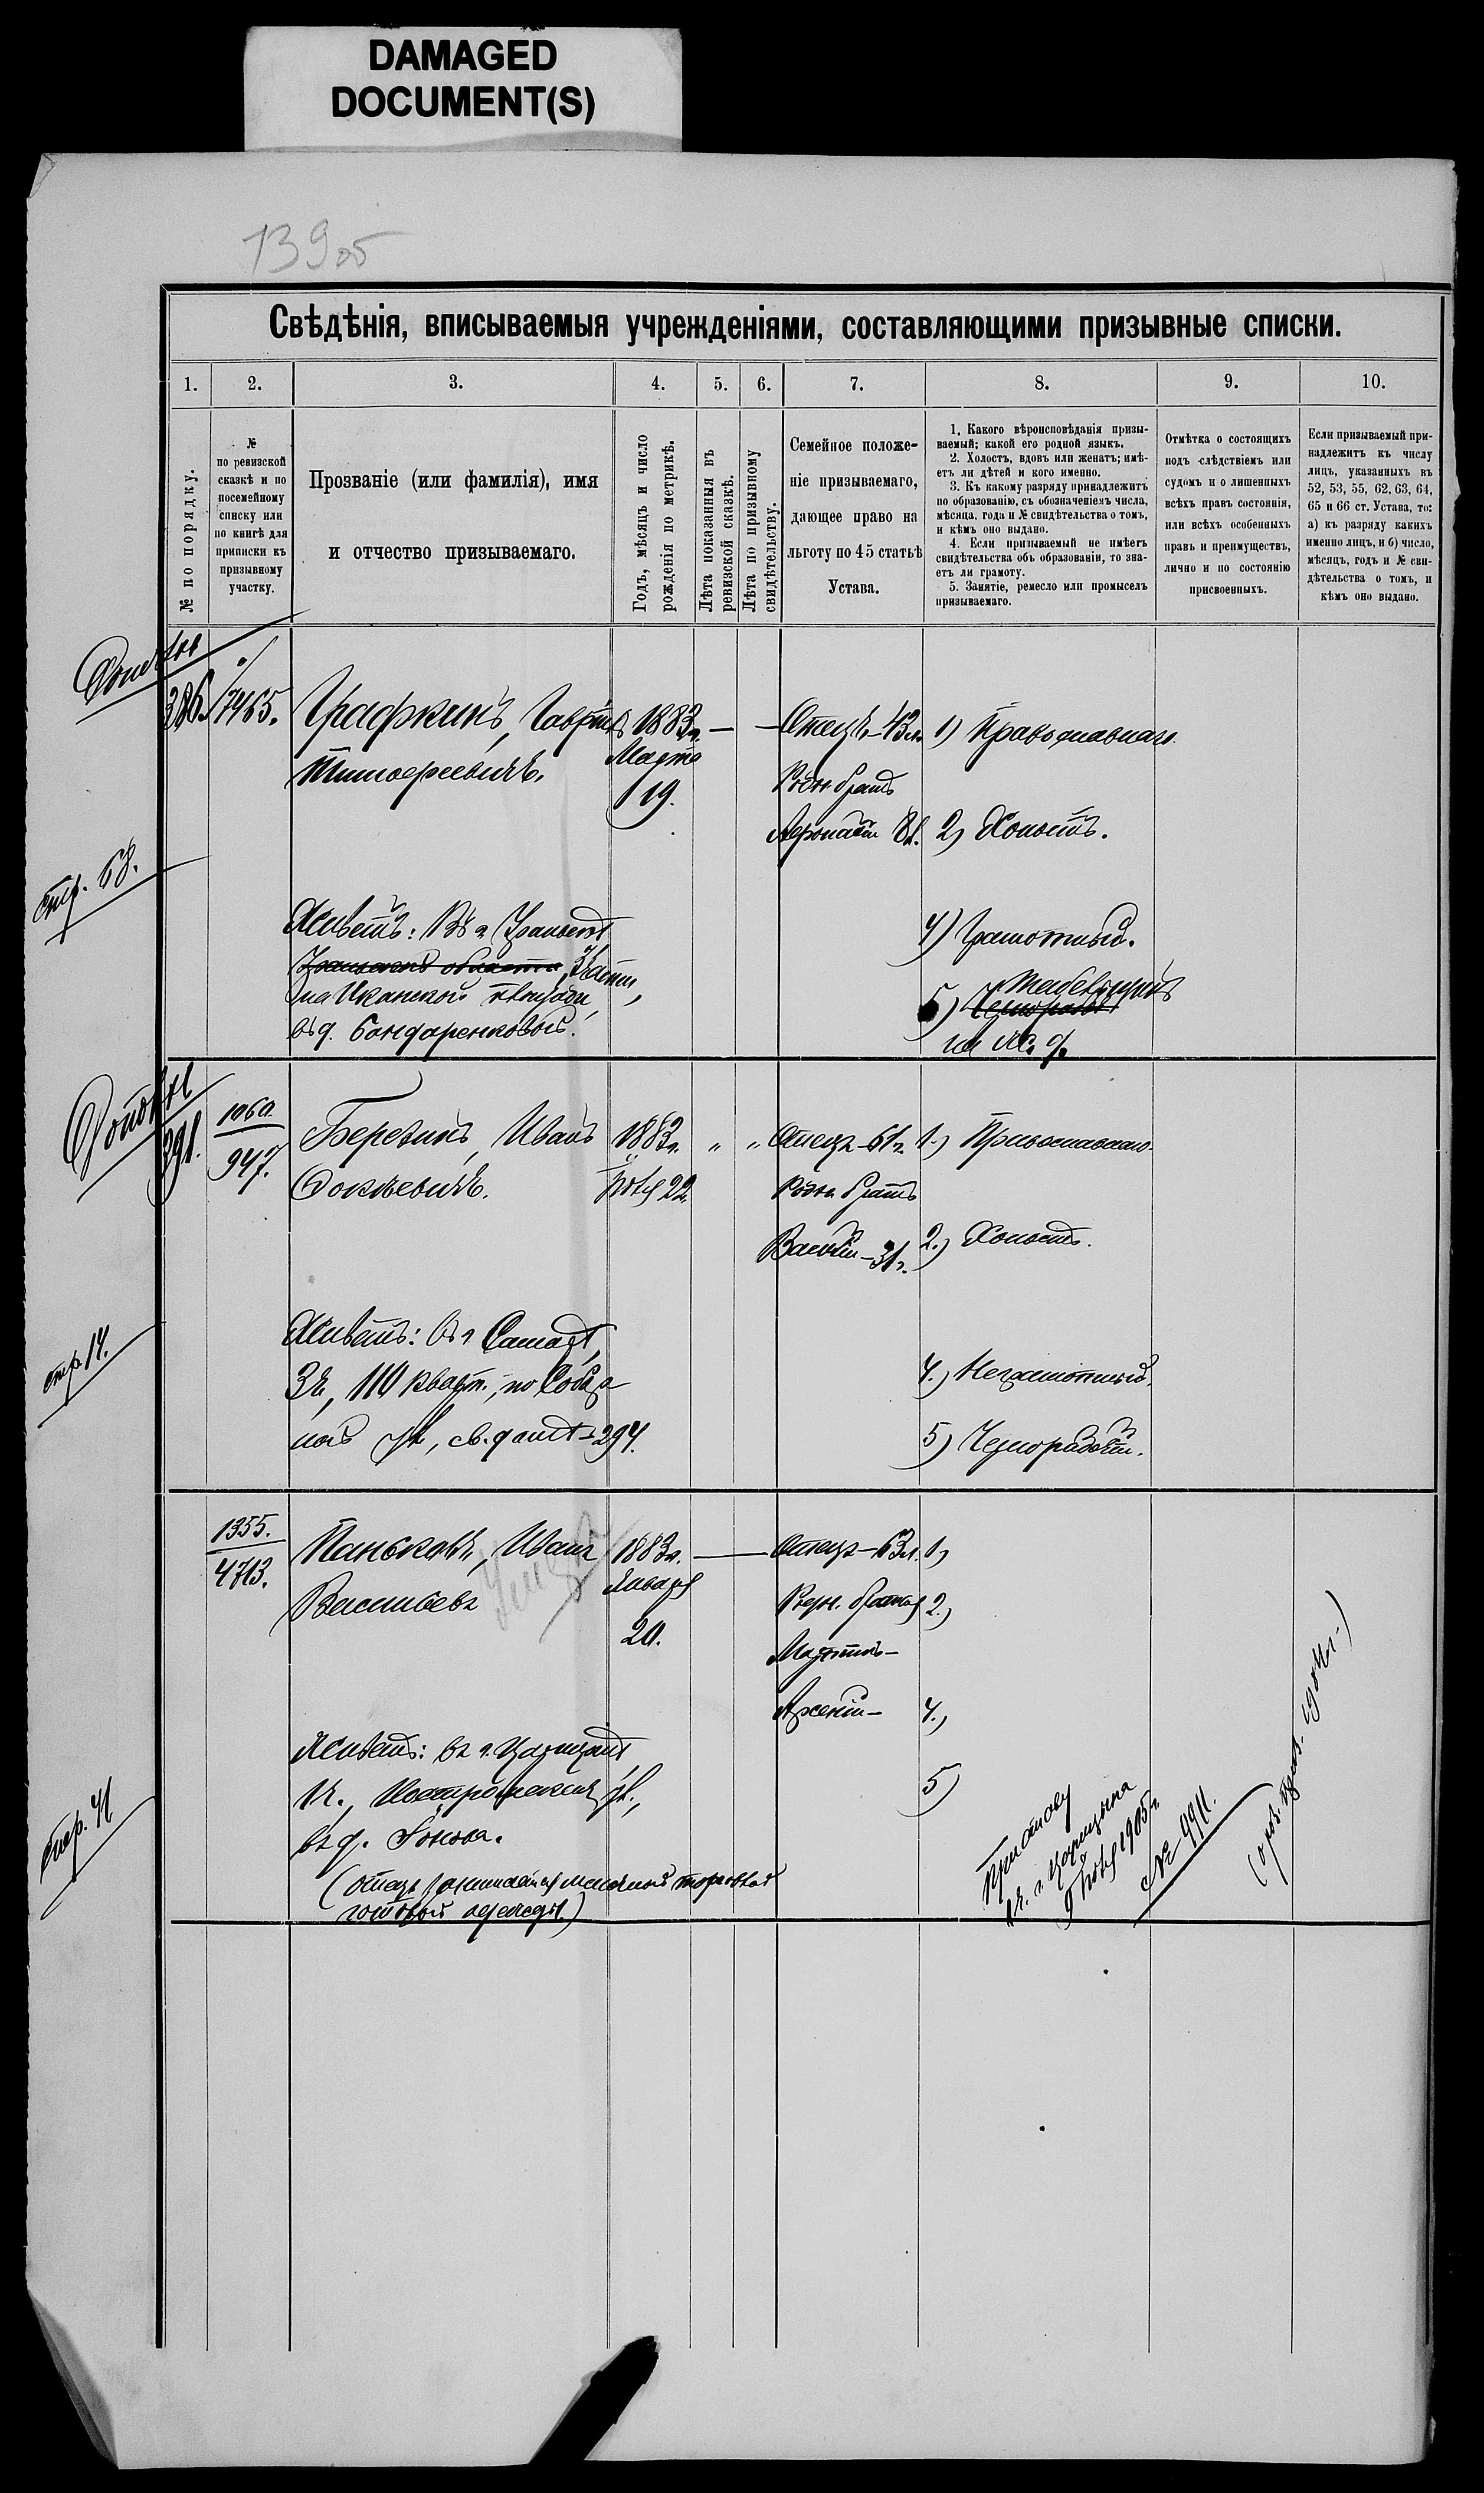 DAMAGED
DOCUMENT(S)
139об
Свѣдѣнія, вписываемыя учрежденіями, составляющими призывные списки.
1. 2. 3. 4. 5. 6. 7. 8. 9. 10.
№ по порядку.
№
по ревизской
сказкѣ и по
посемейному
списку или
по книгѣ для
приписки къ
призывному
участку.
Прозваніе (или фамилія), имя
и отчество призываемаго.
Годъ, мѣсяцъ и число
рожденія по метрикѣ.
Лѣта показанныя въ
ревизской сказкѣ.
Лѣта по призывному
свидѣтельству.
Семейное положе-
ніе призываемаго,
дающее право на
льготу по 45 статьѣ
Устава.
1. Какого вѣроисповѣданія призы-
ваемый; какой его родной языкъ.
2. Холостъ, вдовъ или женатъ; имѣ-
етъ ли дѣтей и кого именно.
3. Къ какому разряду принадлежитъ
по образованію, съ обозначеніемъ числа,
мѣсяца, года и № свидѣтельства о томъ,
и кѣмъ оно выдано.
4. Если призываемый не имѣетъ
свидѣтельства объ образованіи, то зна-
етъ ли грамоту.
5. Занятіе, ремесло или промыселъ
призываемаго.
Отмѣтка о состоящихъ
подъ слѣдствіемъ или
судомъ и о лишенныхъ
всѣхъ правъ состоянія,
или всѣхъ особенныхъ
правъ и преимуществъ,
лично и по состоянію
присвоенныхъ.
Если призываемый при-
надлежитъ къ числу
лицъ, указанныхъ въ
52, 53, 55, 62, 63, 64,
65 и 66 ст. Устава, то:
а) къ разряду какихъ
именно лицъ, и б) число,
мѣсяцъ, годъ и № сви-
дѣтельства о томъ, и
кѣмъ оно выдано.
386. 7465. Графкинъ, Гавріилъ 1883г. — — Отецъ–43л. 1) Православнаго.
Тимофеевичъ. Марта
19.
Родн братъ
2) Холостъ.
стр. 68.
Живетъ: Въ г. Уральскѣ
Уральской области,
въ д. Бондаренковой.
4) Грамотный.
5) Табельщикъ
Чернорабоч
на ж. д.
391. 1060. 947. Березинъ, Иванъ 1883г. „ „ Отецъ–61г. 1.) Православнаго.
Фокѣевичъ. 22. Родн. братъ
Василій–31г. 2.) Холостъ.
стр. 14.
Живетъ: въ г. Самарѣ,
3ч, 110 кварт., по Собор
ной ул, св. домѣ–294.
4.) Неграмотный.
5) Чернорабочій.
1355. 4713. Паньковъ, Иванъ 1883г. — Отецъ–63л. 1)
Васильевъ Января Родн. братья 2.)
20. Мартинъ–
Арсеній– 4.)
стр. 41
Живетъ: въ г. Царицынѣ
1ч., ул.,
въ д.
5)
(отецъ занимается мелочной торговлей
готовой одежды.)
Приставу
1ч. г. Царицына
9 1905г.
№ 9911.